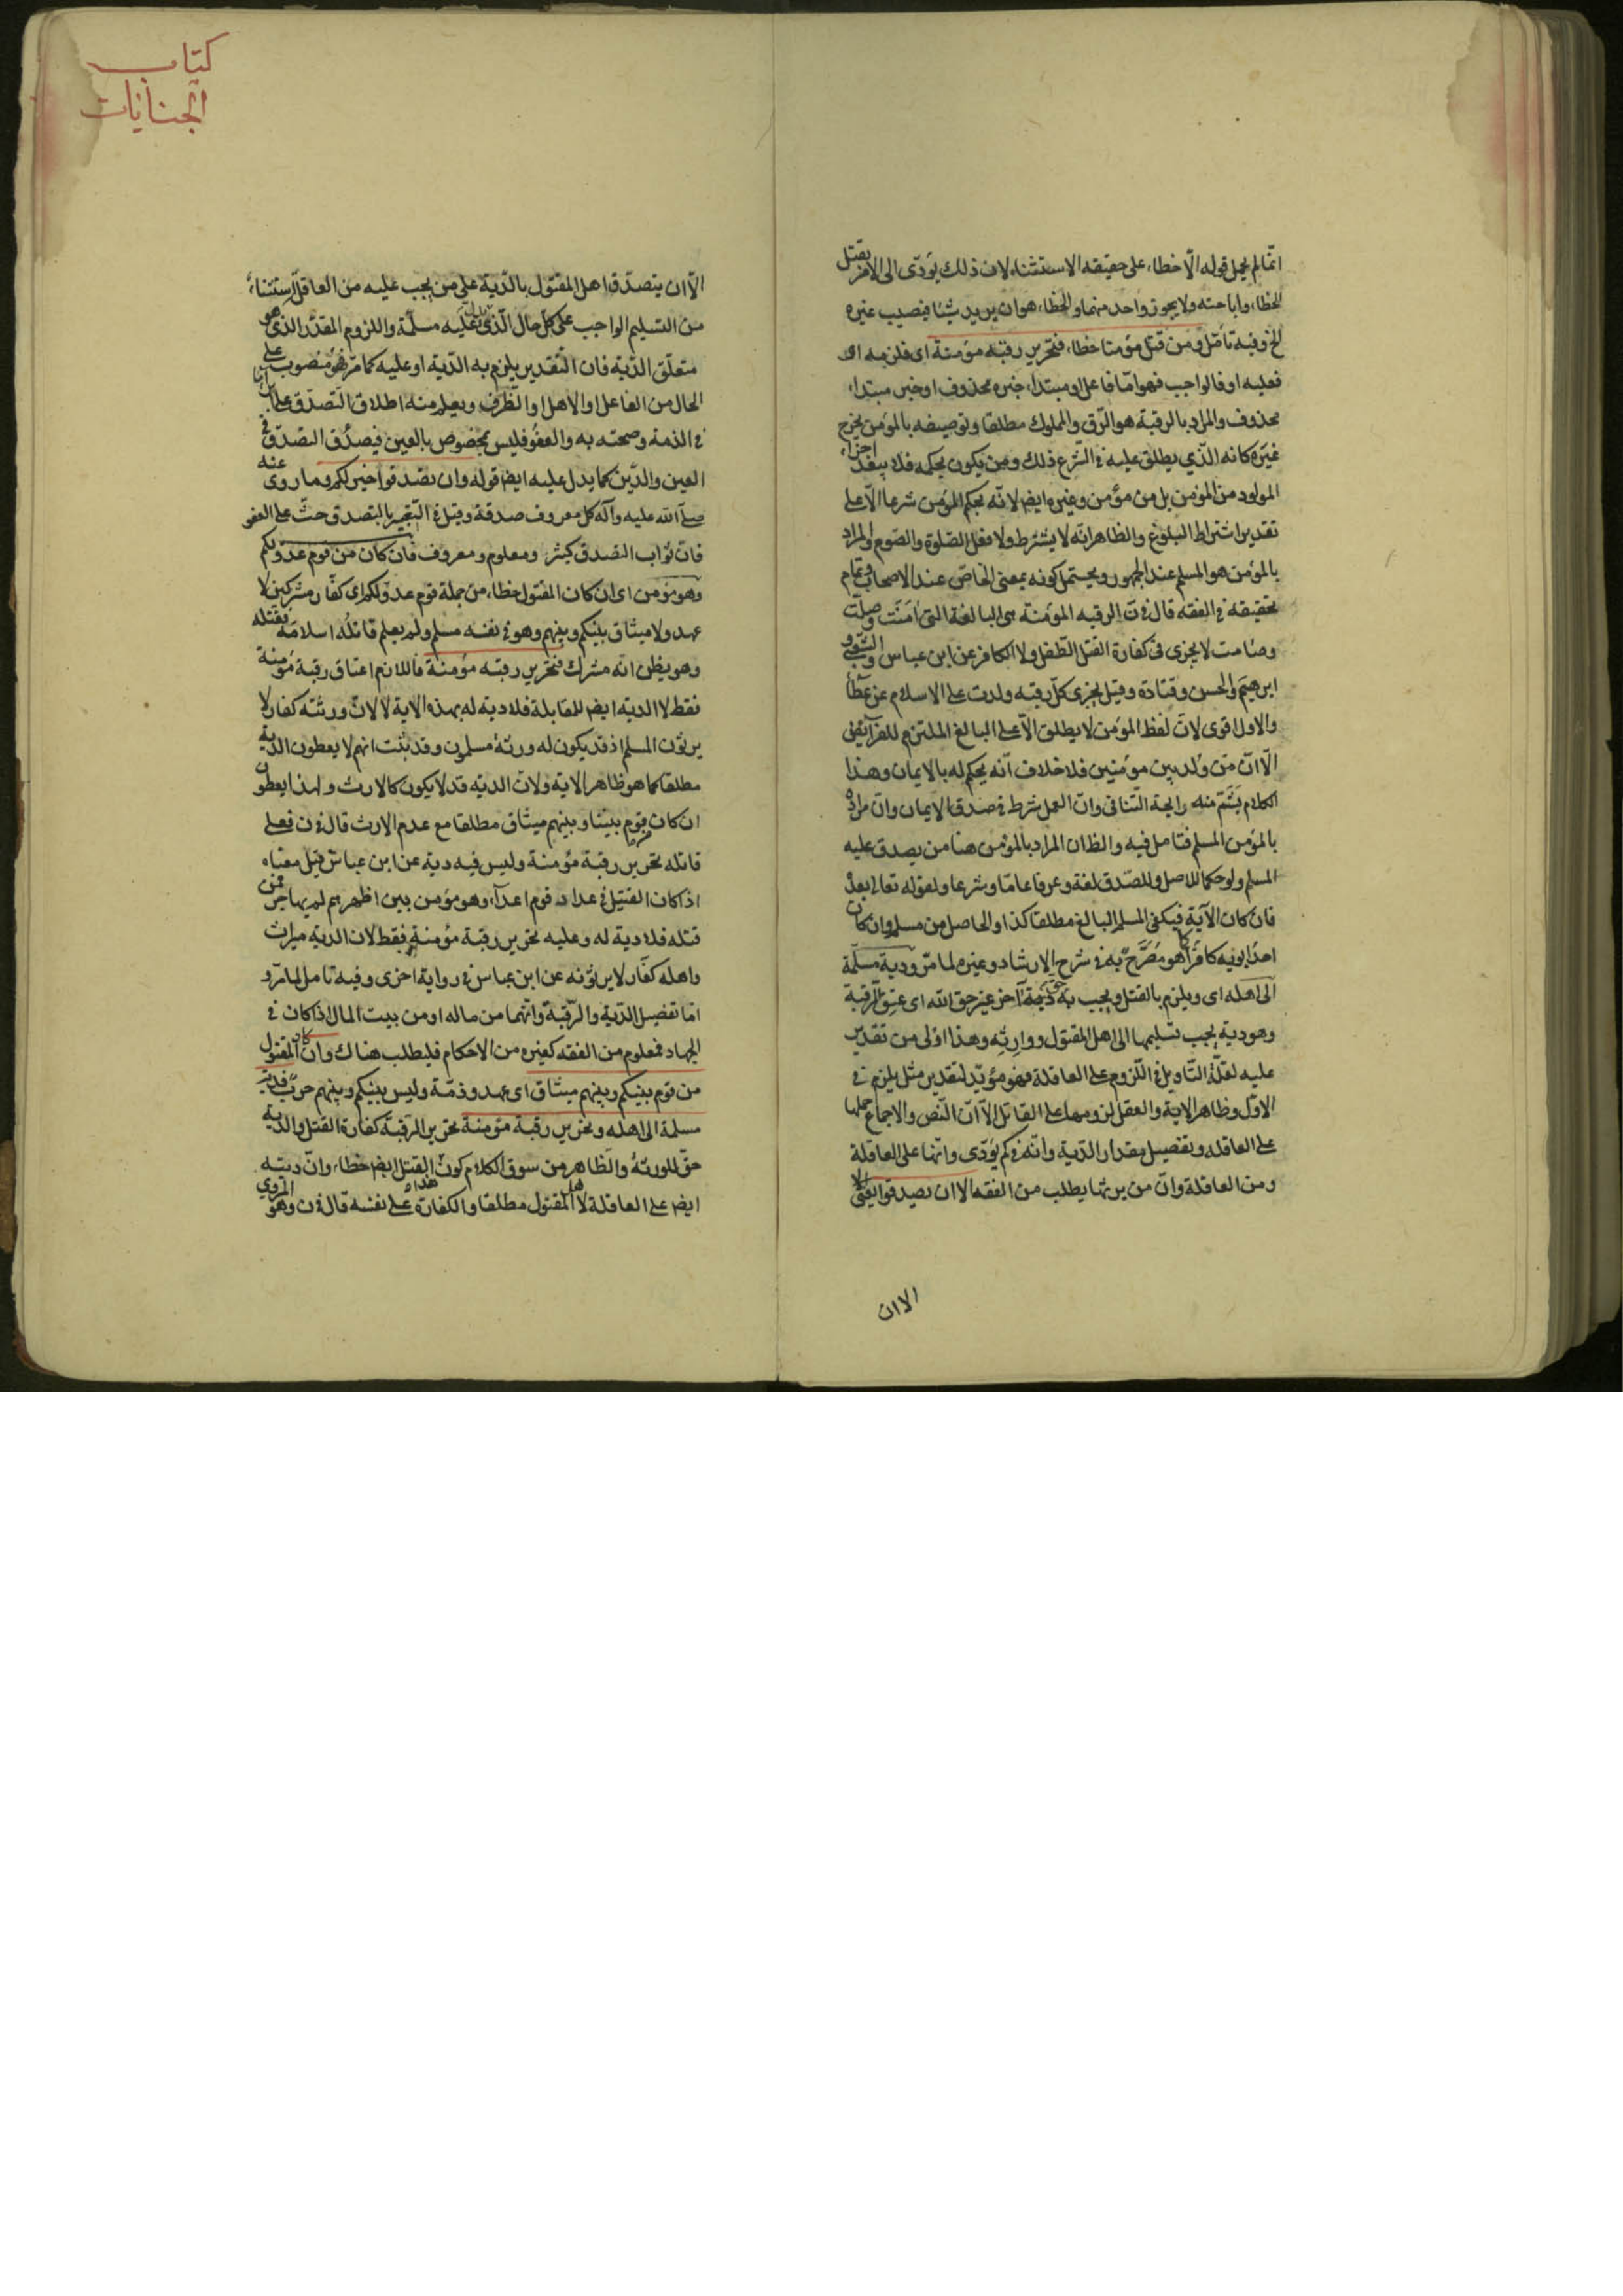 انما لم يحمل قوله الّا خطاء على حقيقه الاستثناء لان ذلك يؤدّى الى الامر بقتل
الخطاء واباحته ولا يجوز واحد منهما والخطاء هو ان يريد شيئا فيصيب غيره
الخ وفيه تأمّل ومن قتل مؤمنا خطاء فتحرير رقبة مؤمنة اى فلزمه او
فعليه او فالواجب فهو امّا فاعل او مبتداء خبره محذوف او خبر مبتداء
محذوف والمراد بالرقبة هو الرّق والمملوك مطلقا وتوصيفه بالمؤمن يخرج
غيره كانه الّذى يطلق عليه فى الشّرع ذلك ومن يكون بحكمه فلا يبعد اجزاء
المولود من المؤمن بل من مؤمن وغيره ايضا لانّه بحكم المؤمن شرعا الّا على
تقدير اشتراط البلوغ والظاهر انّه لا يشترط ولا فعل الصّلوة والصّوم والمراد
بالمؤمن هو المسلم عند الجمهور ويحتمل كونه بمعنى الخاصّ عند الاصحاب وتمام
تحقيقه فى الفقه قال فى ن الرقبه المؤمنة هى البالغة التى امنت وصلّت
وصامت لا يجزى فى كفارة القتل الطّفل ولا الكافر عن ابن عباس والشّعبى و
ابرهيم والحسن وقتادة وقيل يجزى كلّ رقبه ولدت على الاسلام عن عطا
والاول اقوى لانّ لفظ المؤمن لا يطلق الّا على البالغ الملتزم للفرايض
الّا انّ من ولد بين مؤمنين فلا خلاف انّه يحكم له بالايمان وهذا
الكلام يشمّ منه رايحة التّنافى وانّ العمل شرط فى صدق الايمان وان مراده
بالمؤمن المسلم فتامل فيه والظان المراد بالمؤمن هنا من يصدق عليه
المسلم ولو حكما للاصل وللصّدق لغة وعرفا عامّا وشرعا ولقوله تعالى بعدُ
فان كان الآية فيكفى المسلم البالغ مطلقا كذا والحاصل من مسلم وان كان
احد ابويه كافرا كما هو مصرّح به فى شرح الارشاد وغيره لما مرّ ودية مسلّمة
الى اهله اى ويلزم بالقتل ويجب به حق آخر غير حق الله اى عتق الرقبة
وهو دية يجب تسليمها الى اهل المقتول ووارثه وهذا اولى من تقدير
عليه لقلّة التّاويل فى اللّزوم على العاقلة فهو مؤيّد لتقدير مثل يلزم فى
الاوّل وظاهر الاية والعقل لزومها على القاتل الّا انّ النّص والاجماع حملها
على العاقله وتفصيل مقدار الدّية وانّه فى كم يؤدّى وانّها على العاقلة
ومن العاقلة وان من يرثها يطلب من الفقه الا ان يصدقوا يعنى
الا ان
كتاب
الجنايات
الّا ان يتصدّق اهل المقتول بالدّية على من يجب عليه من العاقلة استثناء
من التسليم الواجب على كلّ حال الّذى عليه مسلّمة واللزوم المقدّر الذى هو
متعلّق الدّية فان التّقدير يلزم به الدّية او عليه كما مرّ فهو منصوب على
الحال من الفاعل او الاهل او الظّرف ويعلم منه اطلاق التّصدّق على
فى الذمة وصحته به والعفو فليس بمخصوص بالعين فيصدُق التصدّق فى
العين والدّين كما يدل عليه ايضا قوله وان تصدقوا خير لكم وما روى عنه
صلّى الله عليه وآله كل معروف صدقة وقيل فى التّعبير بالتصدق حثّ على العفو
فانّ ثواب التصدق كثير ومعلوم ومعروف فان كان من قوم عدوّ لكم
وهو مؤمن اى ان كان المقتول خطاء من جملة قوم عدوّ لكم اى كفّار مشركين لا
عهد ولا ميثاق بينكم وبينهم وهو فى نفسه مسلم ولم يعلم قاتله اسلامه بقتله
وهو يظن انّه مشرك فتحرير رقبه مؤمنة فاللازم اعتاق رقبة مؤمنة
فقط لا الديه ايضا للمقابلة فلا دية له بهذه الاية لا لانّ ورثته كفار لا
يرثون المسلم اذ قد يكون له ورثة مسلمون وقد ثبت انهم لا يعطون الدّية
مطلقا كما هو ظاهر الاية ولانّ الدية قد لا يكون كالارث ولهذا يعطون
ان كان قوم بيننا وبينهم ميثاق مطلقا مع عدم الارث قال فى ن فعلى
قاتله تحرير رقبة مؤمنة وليس فيه دية عن ابن عباس قيل معناه
اذا كان القتيل فى عداد قوم اعداء وهو مؤمن بين اظهرهم لم يهاجر فمن
قتله فلا دية له وعليه تحرير رقبة مؤمنة فقط لان الدية ميراث
واهله كفّار لا يرثونه عن ابن عباس فى رواية اخرى وفيه تامل لما مرّ و
امّا تفصيل الدّية والرّقبة وانّهما من ماله او من بيت المال اذا كان فى
الجهاد فمعلوم من الفقه كغيره من الاحكام فليطلب هناك وان كان المقتول
من قوم بينكم وبينهم ميثاق اى عهد وذمّة وليس بينكم وبينهم حرب فدية
مسلمة الى اهله وتحرير رقبة مؤمنة تحرير الرقبة كفارة القتل والدية
حقّ للورثة والظاهر من سوق الكلام كون القتل ايضا خطاء وانّ ديته
ايضا على العاقلة لا المقتول مطلقا والكفارة على نفسه قال فى ن وهو المروي